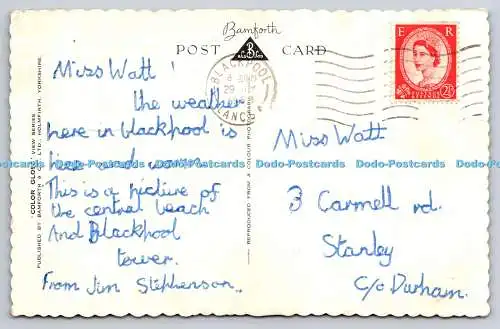 Bamforth
POST CARD
Miss Watt!
the weather
here in blackpool is
and warm
This is a picture of
the central beach
And Blackpool
tower.
From Jim Stephenson.
"COLOR GLOSS" VIEW SERIES
PUBLISHED BY BAMFORTH & CO. LTD., HOLMFIRTH, YORKSHIRE.
REPRODUCED FROM A COLOUR PHOTOGRAPH
BLACKPOOL
LANCS
E R
2½D
Miss Watt
3 Carmell rd.
Stanley
C/o Durham.
Dodo-Postcards Dodo-Postcards Dodo-Postcards Dodo-Postcards